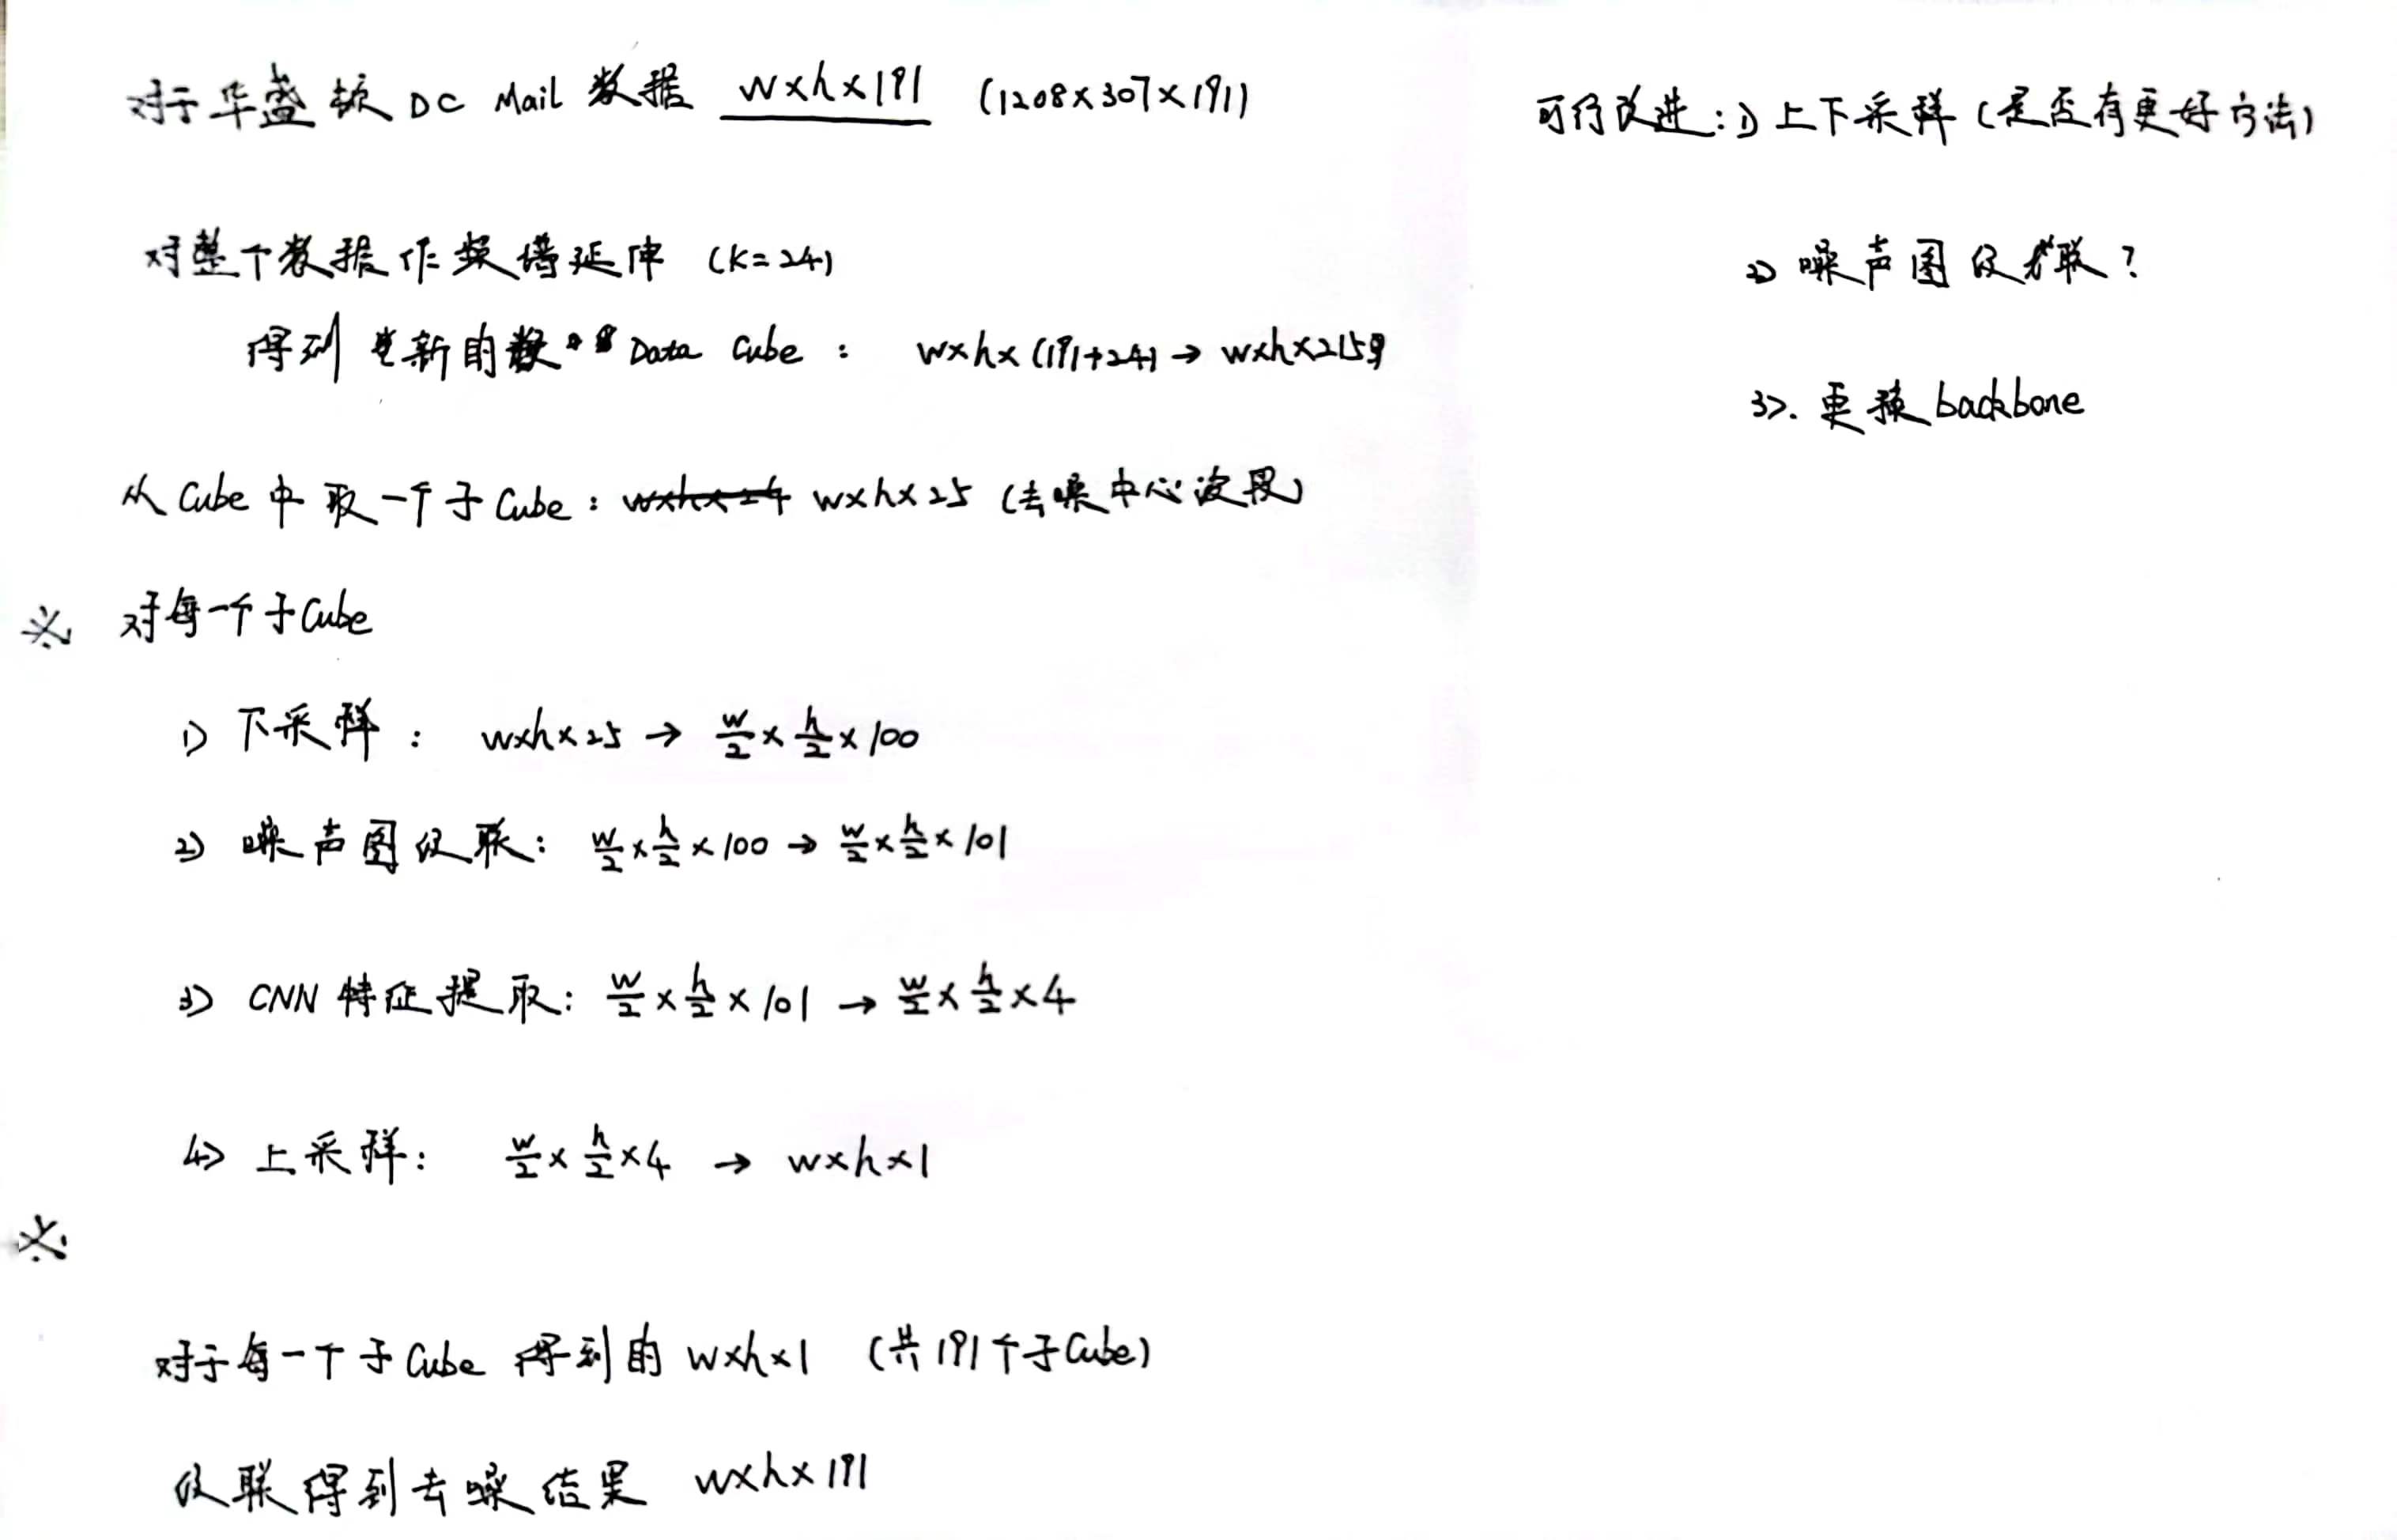 对于华盛顿 DC Mail 数据 w×h×191 (1208×307×191)
对整个数据作频谱延伸 (K=24)
得到更新的 Data Cube : w×h×(191+24) → w×h×215
从 Cube 中取一个子 Cube : w×h×24 w×h×25 (去噪中心波段)
※ 对每一个子 Cube
1) 下采样 : w×h×25 → w/2 × h/2 × 100
2) 噪声图级联: w/2 × h/2 × 100 → w/2 × h/2 × 101
3) CNN 特征提取: w/2 × h/2 × 101 → w/2 × h/2 × 4
4) 上采样: w/2 × h/2 × 4 → w×h×1
※
对于每一个子 Cube 得到的 w×h×1 (共191个子Cube)
级联得到去噪结果 w×h×191
可行改进: 1) 上下采样 (是否有更好方法)
2) 噪声图级联?
3). 更换 backbone